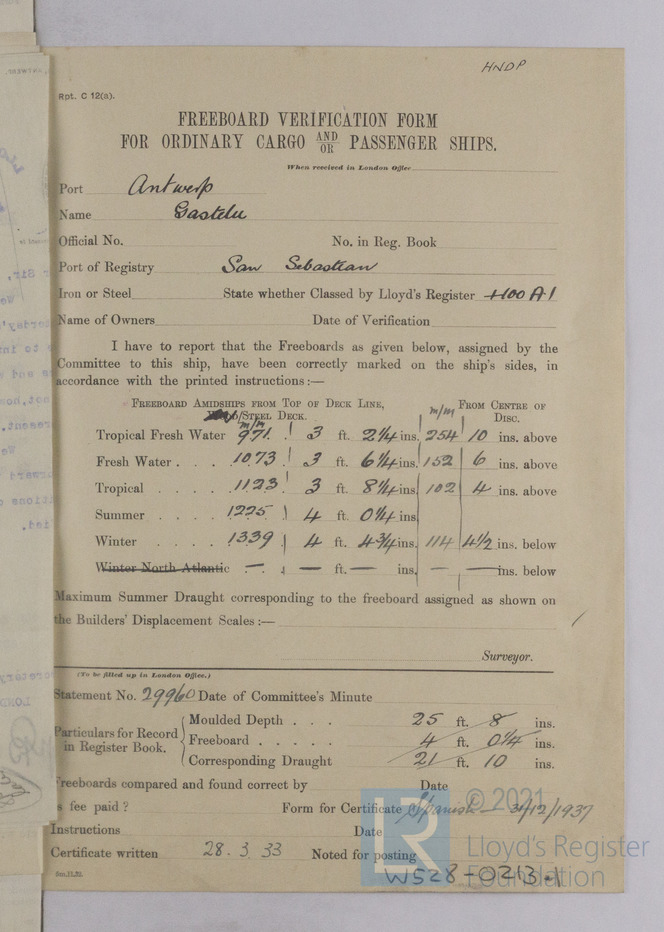 HNDP
Rpt. C 12(a).
FREEBOARD VERIFICATION FORM
FOR ORDINARY CARGO AND/OR PASSENGER SHIPS.
When received in London Office
Port Antwerp
Name Gastelu
Official No. No. in Reg. Book
Port of Registry San Sebastian
Iron or Steel State whether Classed by Lloyd's Register +100 A1
Name of Owners Date of Verification
I have to report that the Freeboards as given below, assigned by the
Committee to this ship, have been correctly marked on the ship's sides, in
accordance with the printed instructions:—
FREEBOARD AMIDSHIPS FROM TOP OF DECK LINE, m/m FROM CENTRE OF
/STEEL DECK. DISC.
m/m
Tropical Fresh Water 971 3 ft. 2 1/4 ins. 254 10 ins. above
Fresh Water . . . 1073 3 ft. 6 1/4 ins. 152 6 ins. above
Tropical . . . . 1123 3 ft. 8 1/4 ins. 102 4 ins. above
Summer . . . . 1225 4 ft. 0 1/4 ins.
Winter . . . . 1339 4 ft. 4 3/4 ins. 114 4 1/2 ins. below
Winter North Atlantic — — ft. — ins. — — ins. below
Maximum Summer Draught corresponding to the freeboard assigned as shown on
the Builders' Displacement Scales:—
Surveyor.
(To be filled up in London Office.)
Statement No. 29960 Date of Committee's Minute
Particulars for Record in Register Book.
Moulded Depth . . . 25 ft. 8 ins.
Freeboard . . . . . 4 ft. 0 1/4 ins.
Corresponding Draught 21 ft. 10 ins.
Freeboards compared and found correct by Date
s fee paid? Form for Certificate Spanish — 3/12/1937
Instructions Date
Certificate written 28. 3. 33 Noted for posting
W528-0213-1
LR
© 2021
Lloyd's Register
Foundation